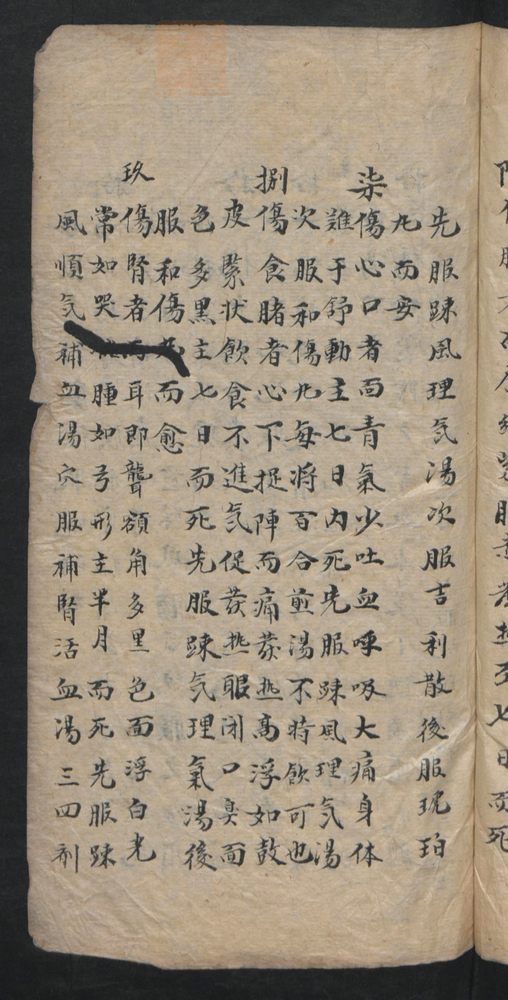 先服踈風理気湯次服吉利散後服琥珀
丸而安
柒傷心口者面青氣少吐血呼吸大痛身体
難于舒動主七日内死先服踈風理気湯
次服和傷丸每將百合煎湯不時飲可也
捌傷食賭者心下捉陣而痛發热高浮如鼓
皮緊状飲食不進気促發热眼闭口臭面
色多黑主七日而死先服踈気理氣湯後
服和傷丸而愈
玖傷腎者両耳即聾額角多黑色面浮白光
常如哭 腫如弓形主半月而死先服踈
風順気補血湯次服補腎活血湯三四剂